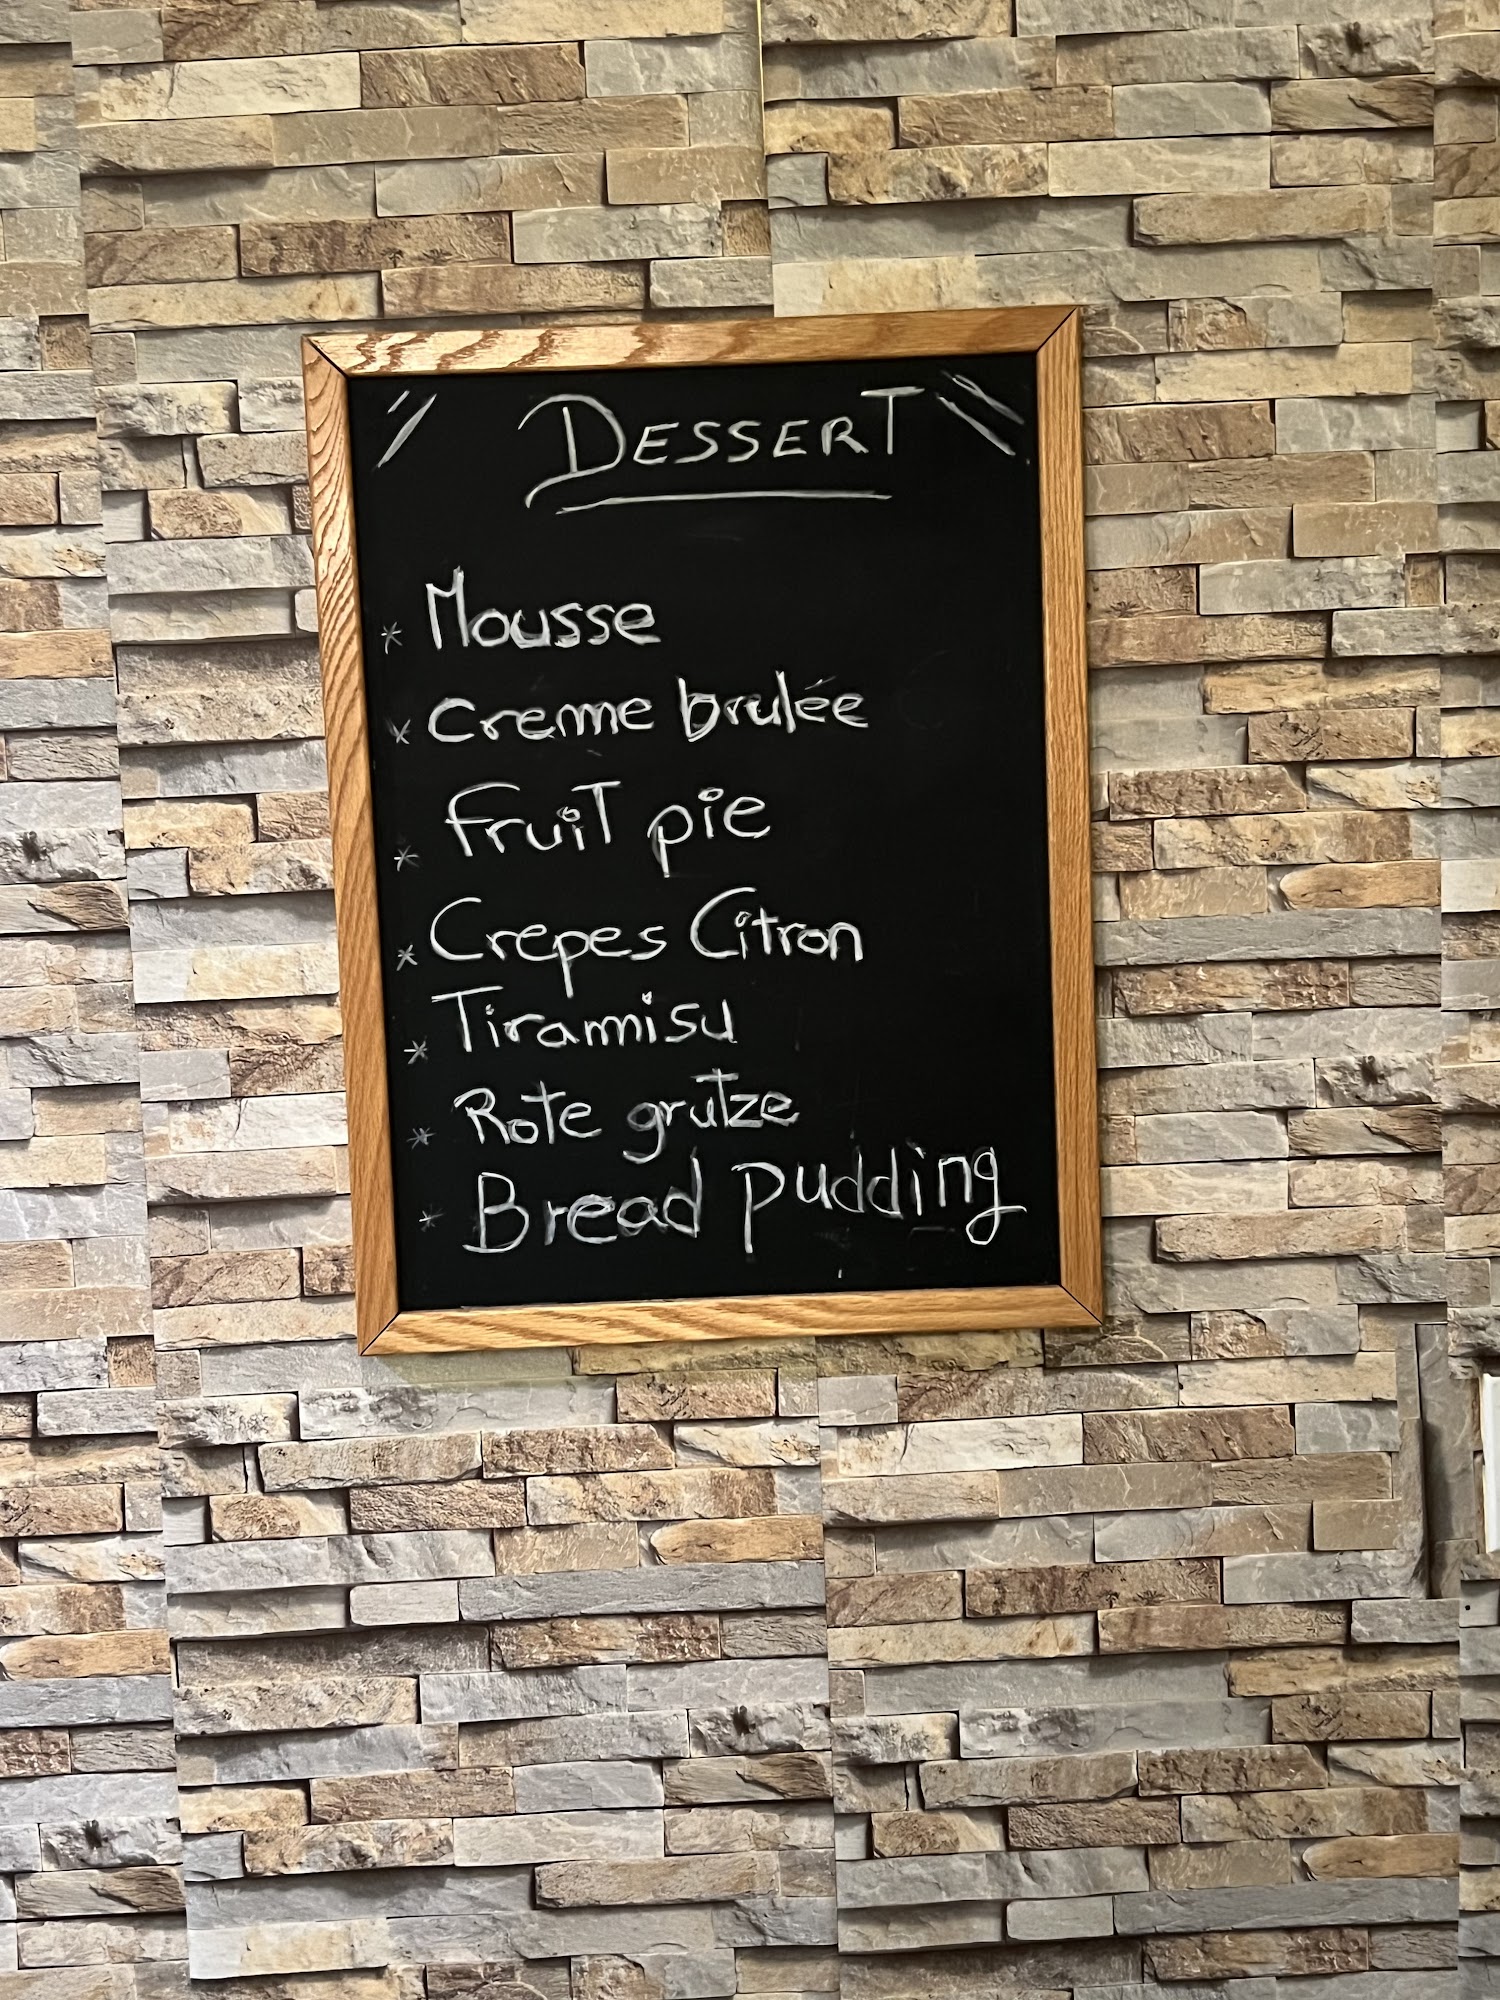 DESSERT
* Mousse
* Creme brulée
* Fruit pie
* Crepes Citron
* Tiramisu
* Rote grutze
* Bread pudding